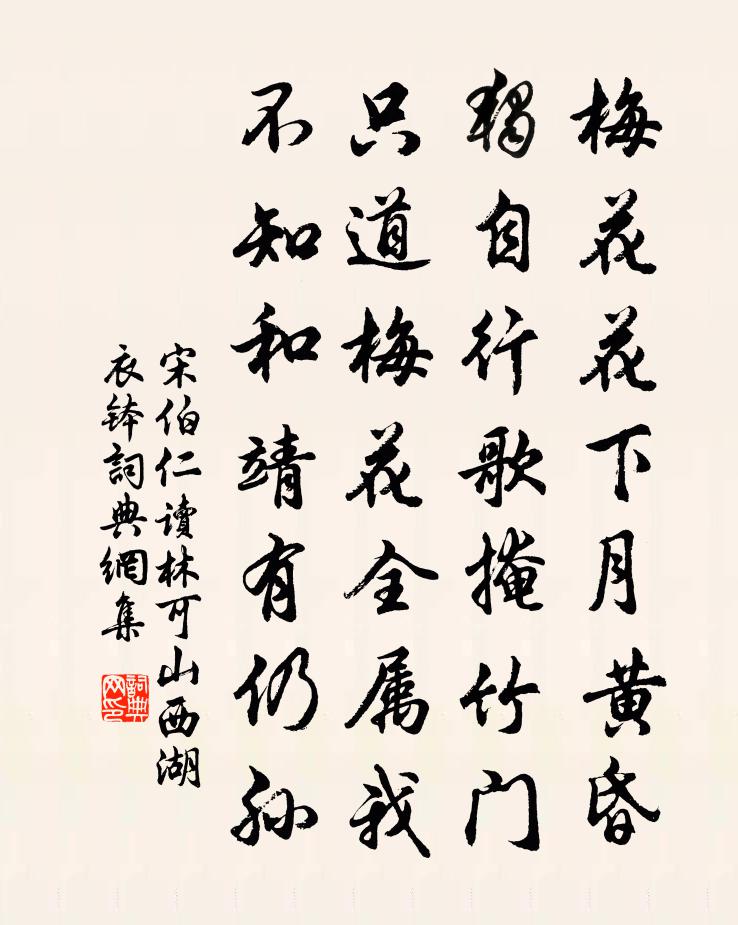 梅花花下月黄昏
獨自行歌掩竹门
只道梅花全属我
不知和靖有仍孙
宋伯仁读林可山西湖
衣钵詞典網集
詞典
网印